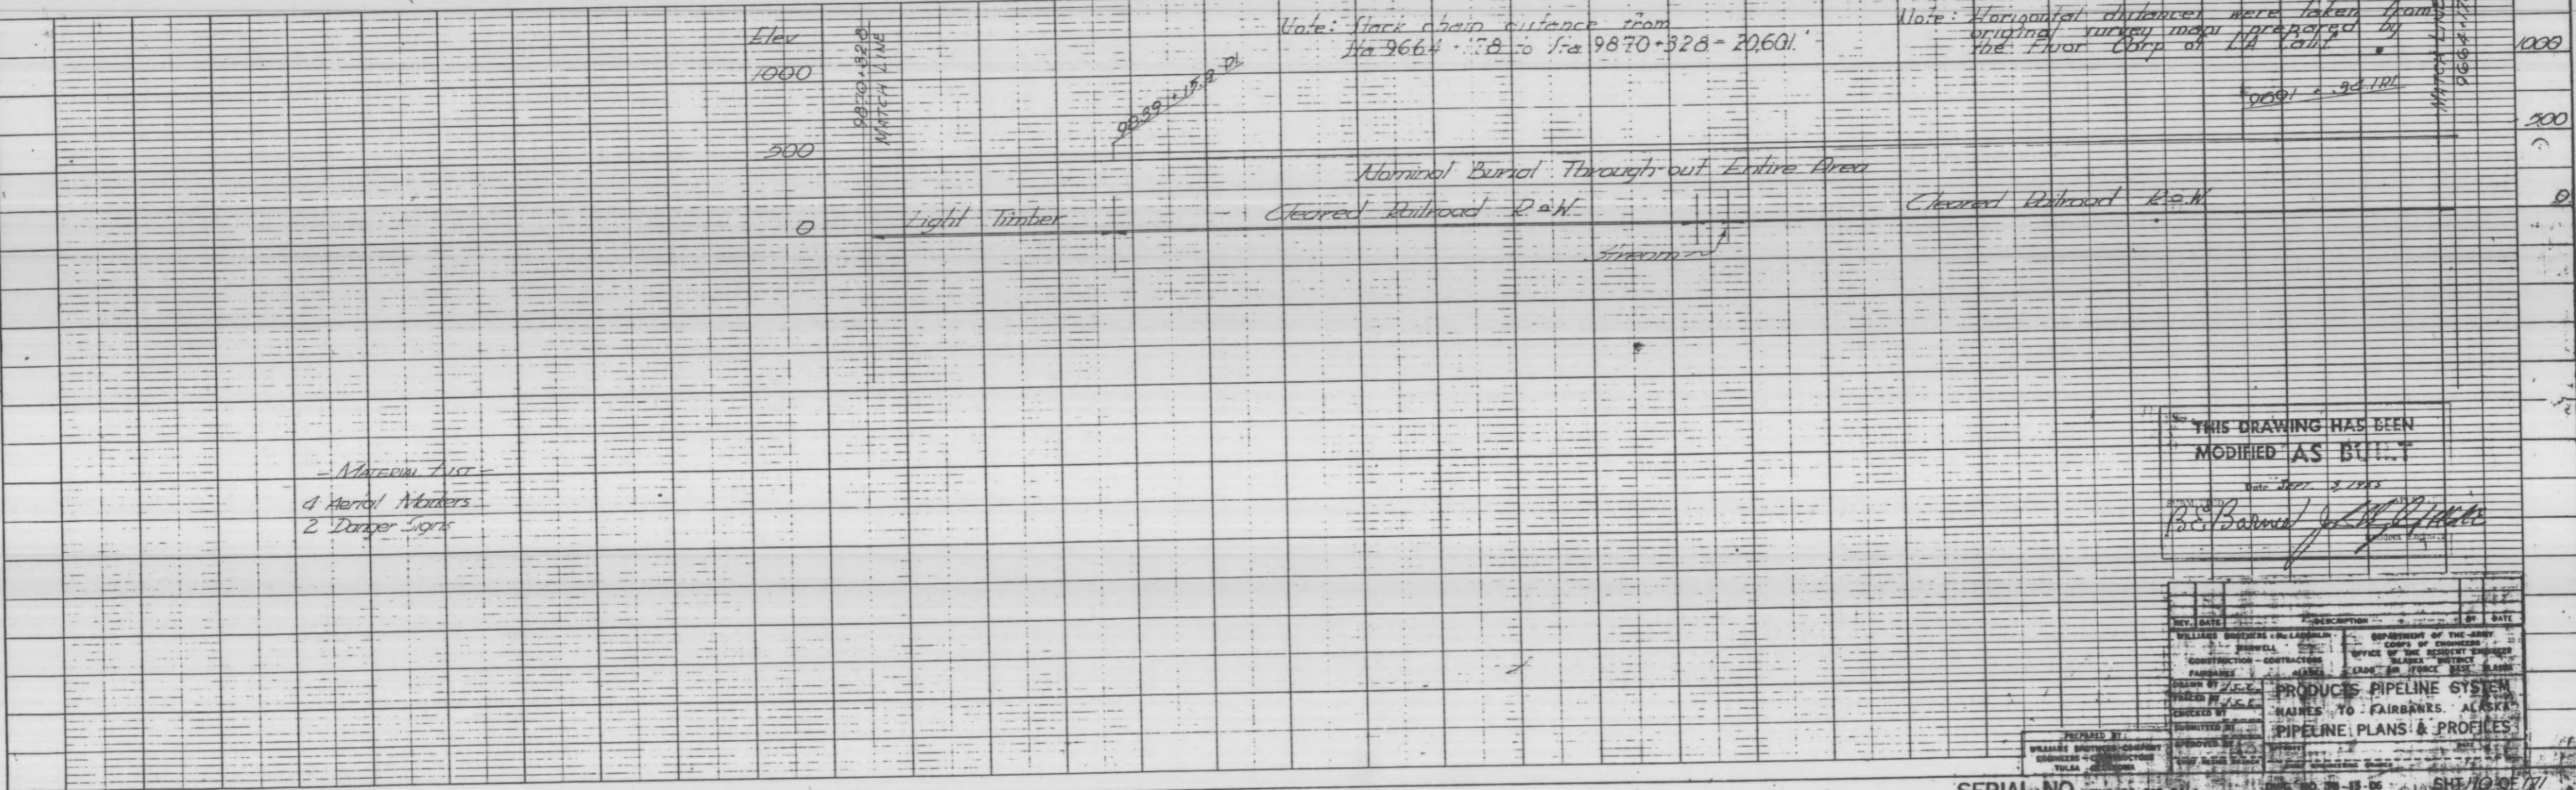 Elev
1000
500
0
9870+328
MATCH LINE
9839 + 15.9 PL
Note: Slack chain distance from
Sta 9664 + 78 to Sta 9870+328 = 20,601.
Note: Horizontal distances were taken from
original survey maps prepared by
the Fluor Corp of LA Calif.
MATCH LINE
1000
500
0
Nominal Burial Through-out Entire Area
Light Timber
Cleared Railroad R.o.W.
Stream
Cleared Railroad R.o.W
- MATERIAL LIST -
4 Aerial Markers
2 Danger Signs
THIS DRAWING HAS BEEN
MODIFIED AS BUILT
Date SEPT. 1955
REV. DATE DESCRIPTION BY DATE
WILLIAMS BROTHERS McLAUGHLIN
MARWELL
CONSTRUCTION - CONTRACTORS
FAIRBANKS ALASKA
DEPARTMENT OF THE ARMY
CORPS OF ENGINEERS
OFFICE OF THE RESIDENT ENGINEER
ALASKA DISTRICT
LADD AIR FORCE BASE ALASKA
DRAWN BY
TRACED BY
CHECKED BY
SUBMITTED BY
APPROVED BY
PRODUCTS PIPELINE SYSTEM
HAINES TO FAIRBANKS, ALASKA
PIPELINE PLANS & PROFILES
PREPARED BY
WILLIAMS BROTHERS COMPANY
ENGINEERS - CONTRACTORS
TULSA OKLAHOMA
SERIAL NO
SHT 110 OF 171